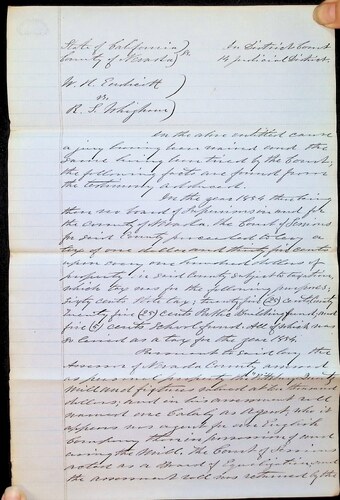 State of California) In District Court
County of Nevada) ss 14 judicial District.
W. H. Endicott )
vs )
R. S. Whigham )
In the above entitled cause
a jury having been waived and the
same having been tried by the Court,
the following facts are found from
the testimony adduced.
In the year 1854 there being
then no board of Supervisors in and for
the County of Nevada, the Court of Sessions
for said County proceeded to levy a
tax of one and thirty five cents
upon every one hundred dollars of
property in said County subject to taxation,
which tax was for the following purposes;
sixty cents State tax; twenty five (25) cents County
Twenty five (25) cents Public Building fund, and
five (5) cents School fund. All of which was
so levied as a tax for the year 1854.
Pursuant to said levy the
Assessor of Nevada County assessed
as personal property the
Mill and fixtures valued at thousand
dollars, and in his assessment roll
named one as Agent, who it
appears was agent for one English
Company then in possession of and
using the Mill. The Court of Sessions
acted as a Board of Equalization, and
the assessment roll was returned by the